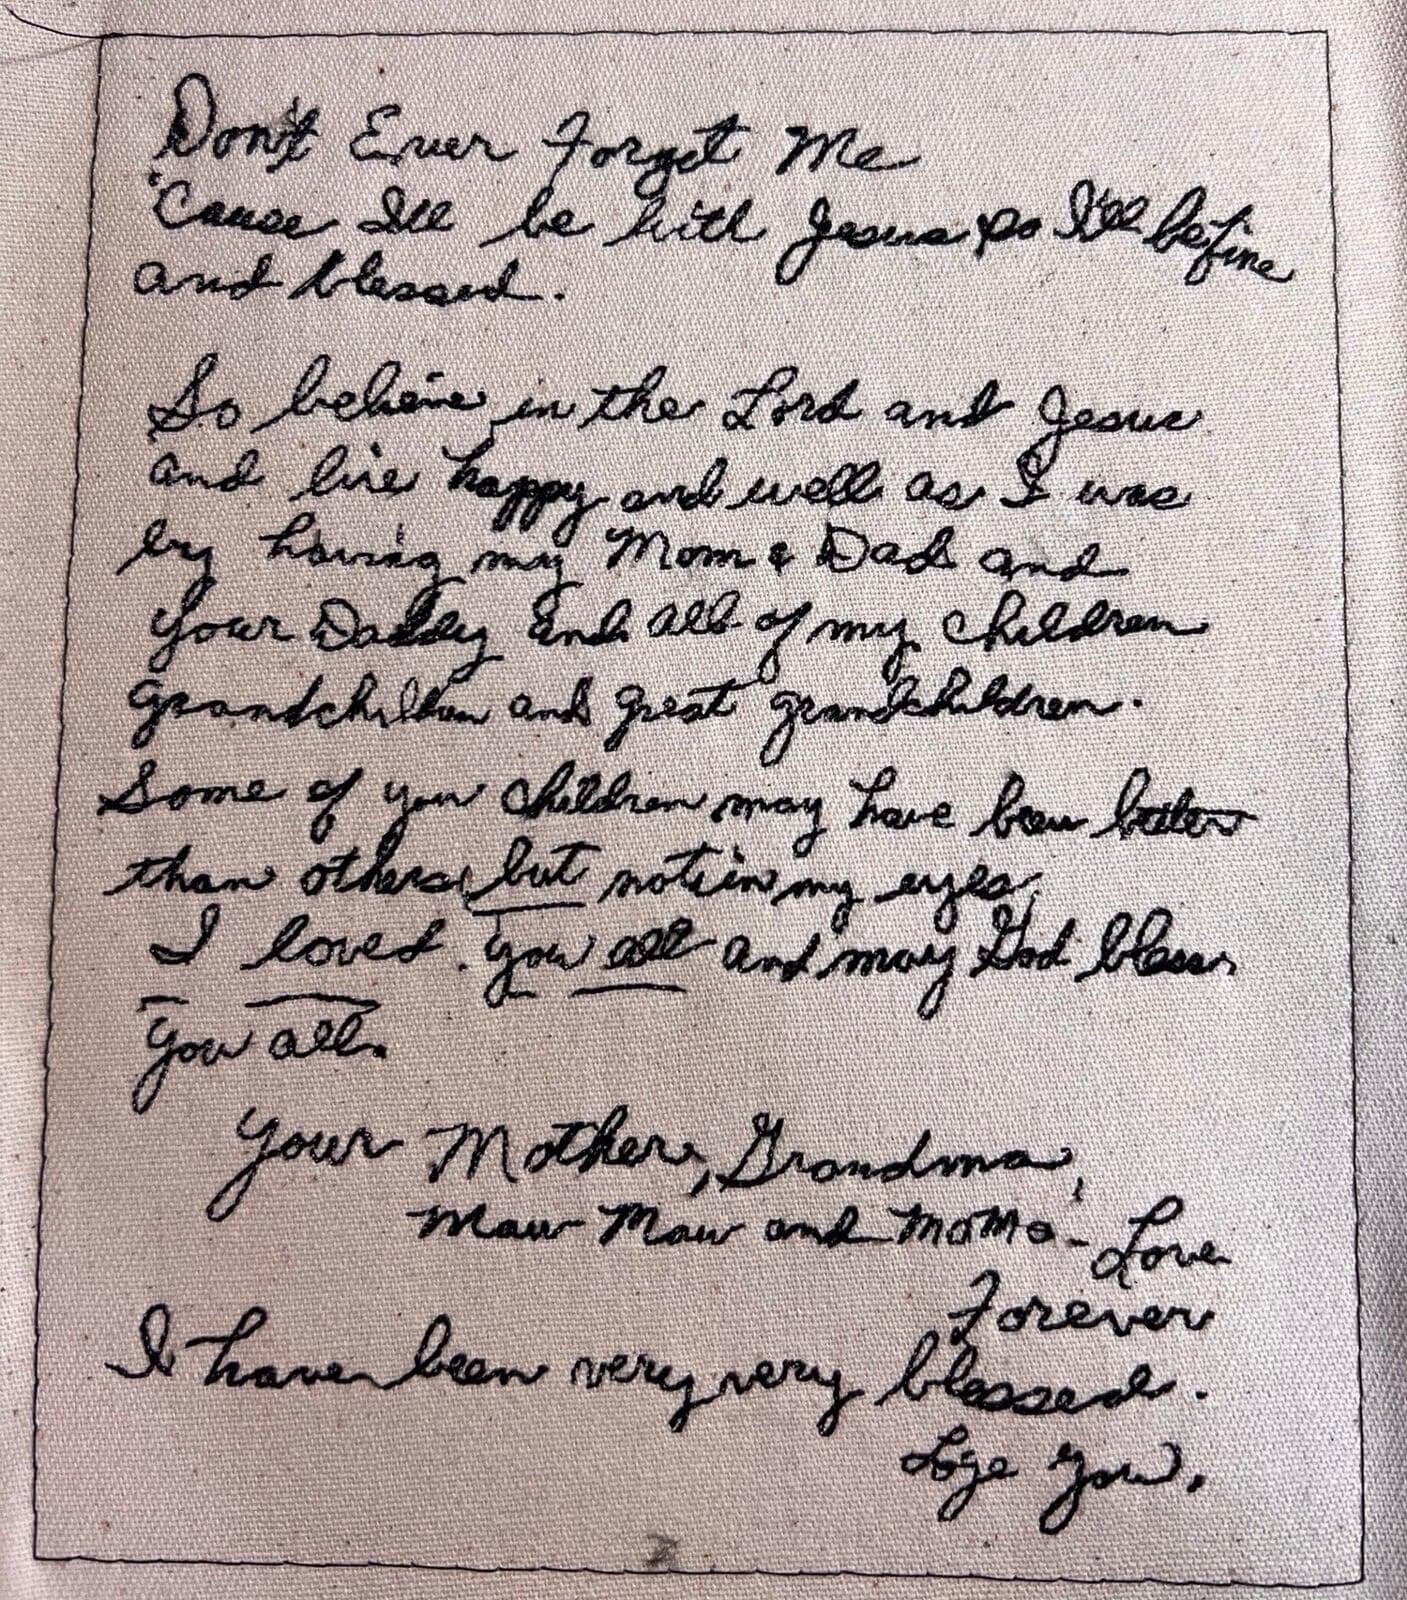 Don't Ever Forget Me
'Cause I'll be with Jesus so I'll be fine
and blessed.
So believe in the Lord and Jesus
and live happy and well as I was
by having my Mom & Dad and
your Daddy and all of my children
grandchildren and great grandchildren.
Some of you children may have been better
than others, but not in my eyes.
I loved you all and may God bless
you all.
Your Mother, Grandma,
Maw Maw and MaMa - Love
Forever
I have been very very blessed.
Love you.